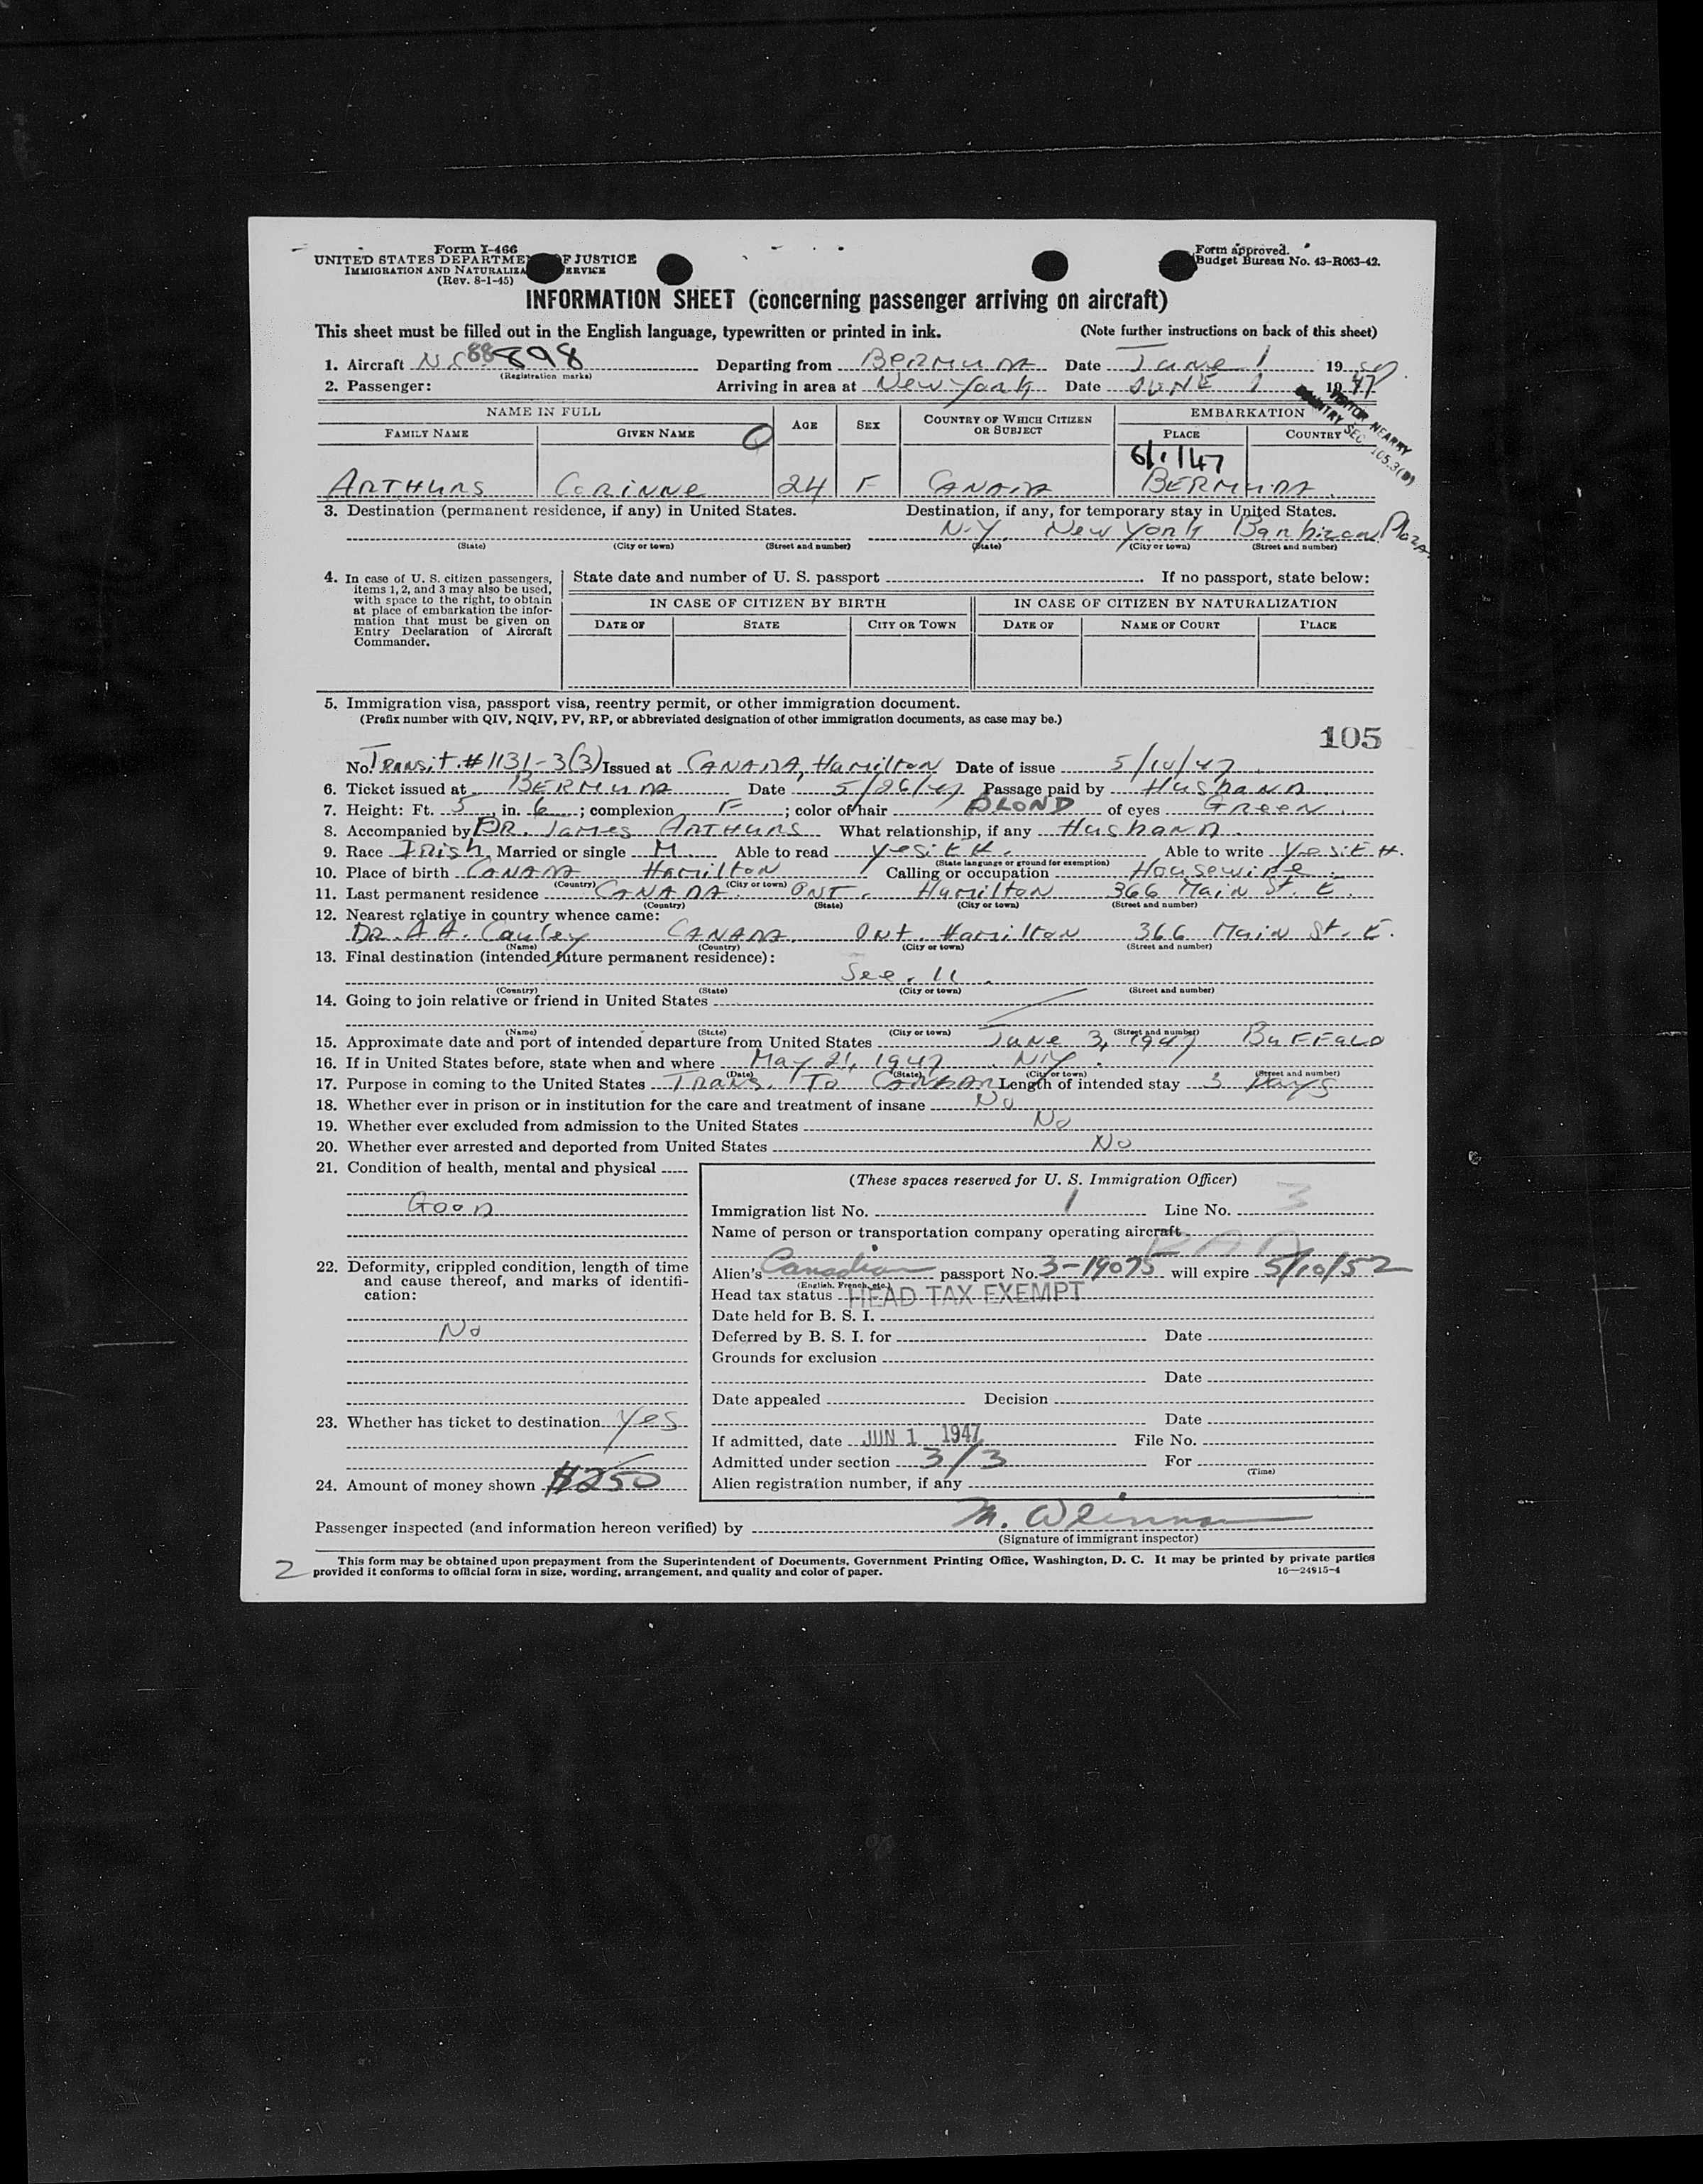 Form I-466
UNITED STATES DEPARTME F JUSTICE
IMMIGRATION AND NATURALIZA ERVICE
(Rev. 8-1-45)
Form approved.
Budget Bureau No. 43-R063-42.
INFORMATION SHEET (concerning passenger arriving on aircraft)
This sheet must be filled out in the English language, typewritten or printed in ink. (Note further instructions on back of this sheet)
1. Aircraft NC 88898 Departing from BERMUDA Date June 1 19
(Registration marks)
2. Passenger: Arriving in area at New York Date JUNE 1 1947
VISITOR NEARBY
COUNTRY SEC. 105.3(B)
NAME IN FULL AGE SEX COUNTRY OF WHICH CITIZEN OR SUBJECT EMBARKATION
FAMILY NAME GIVEN NAME PLACE COUNTRY
6/1/47
ARTHURS CORINNE 24 F CANADA BERMUDA
3. Destination (permanent residence, if any) in United States. Destination, if any, for temporary stay in United States.
N.Y. New York Barbizon Plaza
(State) (City or town) (Street and number) (State) (City or town) (Street and number)
4. In case of U. S. citizen passengers, items 1, 2, and 3 may also be used, with space to the right, to obtain at place of embarkation the information that must be given on Entry Declaration of Aircraft Commander.
State date and number of U. S. passport If no passport, state below:
IN CASE OF CITIZEN BY BIRTH IN CASE OF CITIZEN BY NATURALIZATION
DATE OF STATE CITY OR TOWN DATE OF NAME OF COURT PLACE
5. Immigration visa, passport visa, reentry permit, or other immigration document.
(Prefix number with QIV, NQIV, PV, RP, or abbreviated designation of other immigration documents, as case may be.)
105
No. Transit #1131-3(3) Issued at CANADA, Hamilton Date of issue 5/10/47
6. Ticket issued at BERMUDA Date 5/26/47 Passage paid by Husband
7. Height: Ft. 5, in. 6; complexion F; color of hair BLOND of eyes Green
8. Accompanied by DR. James ARTHURS What relationship, if any Husband
9. Race Irish Married or single M Able to read yes Able to write Yes
(State language or ground for exemption)
10. Place of birth CANADA Hamilton Calling or occupation Housewife
(Country) (City or town)
11. Last permanent residence CANADA ONT. Hamilton 366 Main St. E.
(Country) (State) (City or town) (Street and number)
12. Nearest relative in country whence came:
DR. A A. Cauley CANADA ONT. Hamilton 366 Main St. E.
(Name) (Country) (City or town) (Street and number)
13. Final destination (intended future permanent residence):
See. 11
(Country) (State) (City or town) (Street and number)
14. Going to join relative or friend in United States
(Name) (State) (City or town) (Street and number)
15. Approximate date and port of intended departure from United States June 3, 1947 BuFFalo
16. If in United States before, state when and where May 21, 1947 N.Y.
(Date) (State) (City or town) (Street and number)
17. Purpose in coming to the United States Trans. To CANADA Length of intended stay 3 Days
18. Whether ever in prison or in institution for the care and treatment of insane No
19. Whether ever excluded from admission to the United States No
20. Whether ever arrested and deported from United States No
21. Condition of health, mental and physical
Good
22. Deformity, crippled condition, length of time and cause thereof, and marks of identification:
No
23. Whether has ticket to destination yes
24. Amount of money shown $250
(These spaces reserved for U. S. Immigration Officer)
Immigration list No. 1 Line No. 3
Name of person or transportation company operating aircraft
Alien's Canadian passport No. 3-19075 will expire 5/10/52
(English, French, etc.)
Head tax status HEAD TAX EXEMPT
Date held for B. S. I.
Deferred by B. S. I. for Date
Grounds for exclusion
Date
Date appealed Decision
Date
If admitted, date JUN 1 1947 File No.
Admitted under section 3/3 For
(Time)
Alien registration number, if any
Passenger inspected (and information hereon verified) by
(Signature of immigrant inspector)
2
This form may be obtained upon prepayment from the Superintendent of Documents, Government Printing Office, Washington, D. C. It may be printed by private parties
provided it conforms to official form in size, wording, arrangement, and quality and color of paper. 16—24915-4